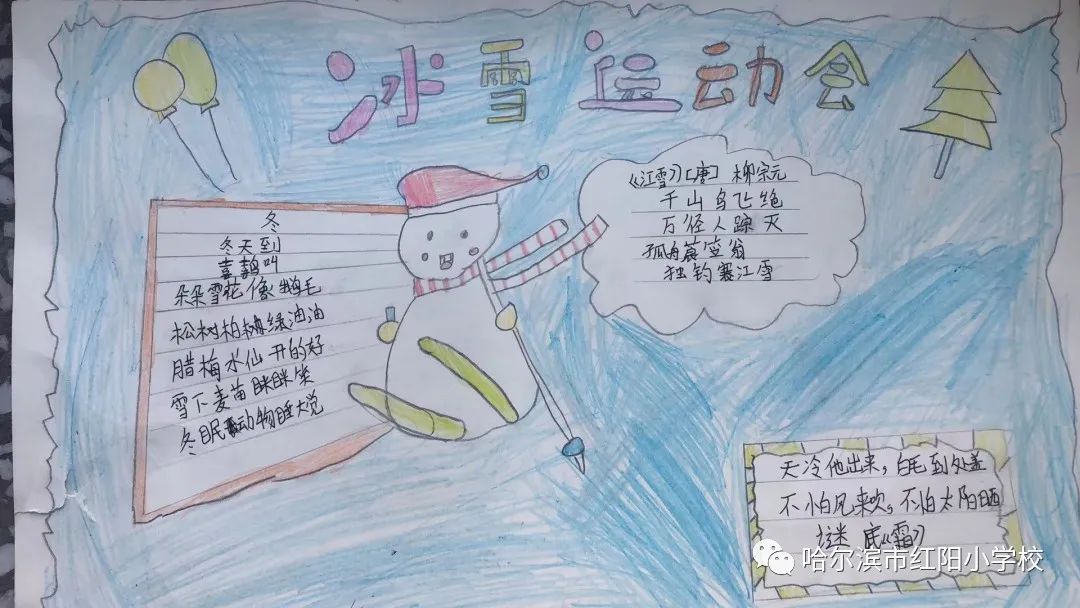 冰雪运动会
冬
冬天到
喜鹊叫
朵朵雪花像鹅毛
松树柏树绿油油
腊梅水仙开的好
雪下麦苗眯眯笑
冬眠动物睡大觉
《江雪》[唐] 柳宗元
千山鸟飞绝
万径人踪灭
孤舟蓑笠翁
独钓寒江雪
天冷他出来，白毛到处盖
不怕风来吹，不怕太阳晒
谜底《霜》
哈尔滨市红阳小学校